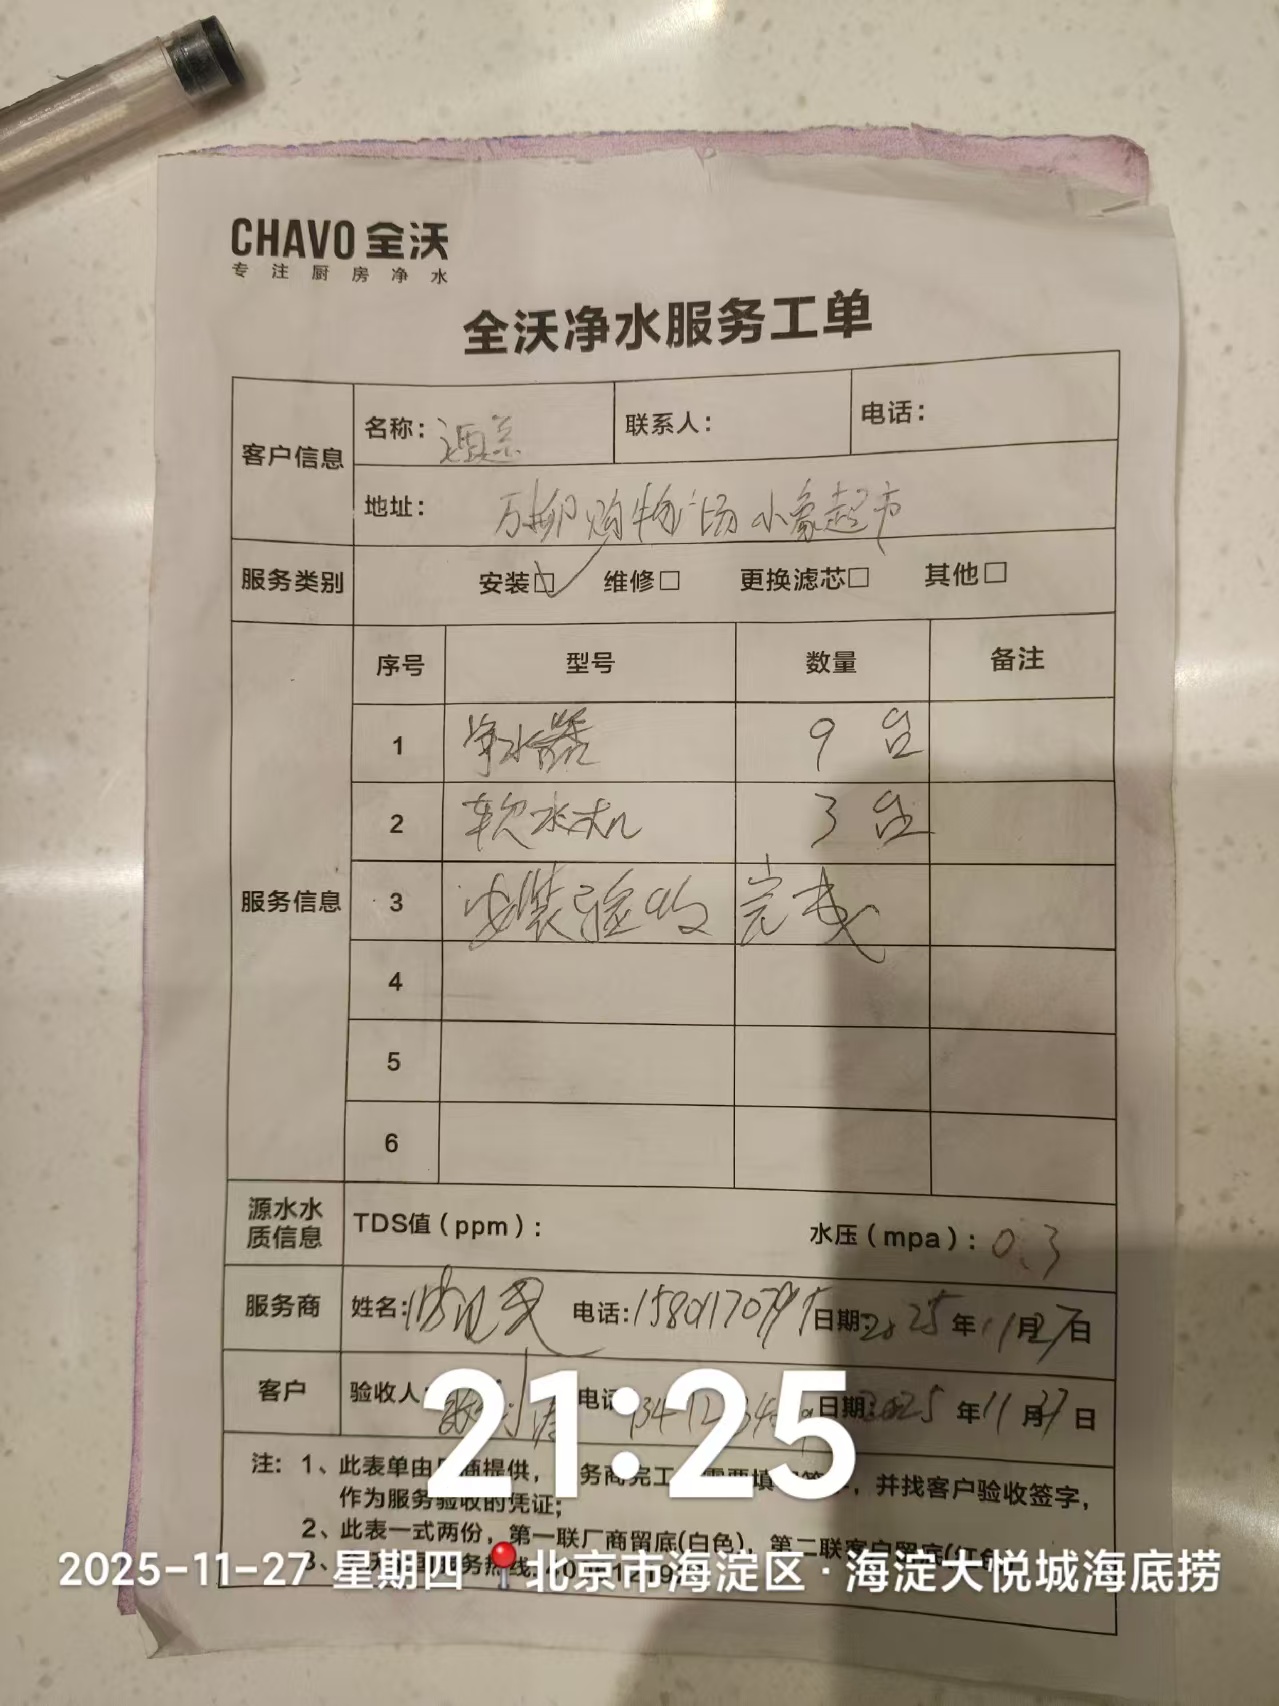 CHAVO 全沃
专注厨房净水
全沃净水服务工单
客户信息
名称：
联系人：
电话：
地址： 万柳购物广场 小象超市
服务类别
安装☑ 维修□ 更换滤芯□ 其他□
服务信息
序号 型号 数量 备注
1 净水器 9 台
2 软水机 3 台
3 安装验收完成
4
5
6
源水水质信息
TDS值（ppm）：
水压（mpa）：0.3
服务商
姓名：
电话：
日期：2025年11月27日
客户
验收人：
电话
日期：2025年11月27日
21:25
注：1、此表单由 商提供， 务商完工 需要填 ，并找客户验收签字，
作为服务验收的凭证；
2、此表一式两份，第一联厂商留底(白色)，第二联客户留底(红
3、
2025-11-27 星期四 北京市海淀区·海淀大悦城海底捞